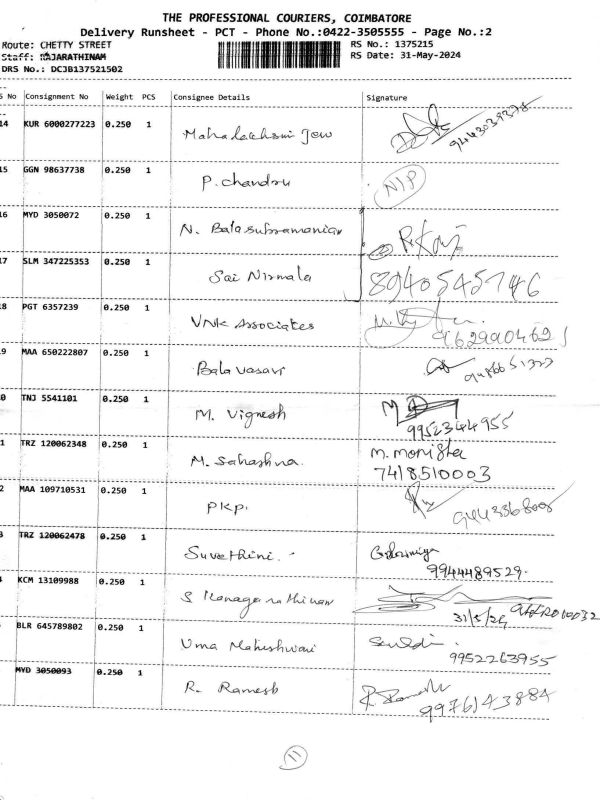 THE PROFESSIONAL COURIERS, COIMBATORE
Delivery Runsheet - PCT - Phone No.:0422-3505555 - Page No.:2
Route: CHETTY STREET RS No.: 1375215
Staff: RAJARATHINAM RS Date: 31-May-2024
DRS No.: DCJB137521502
S No Consignment No Weight PCS Consignee Details Signature
14 KUR 6000277223 0.250 1 Mahalakshmi Jew 9443039378
15 GGN 98637738 0.250 1 P. Chandru N/P
16 MYD 3050072 0.250 1 N. Balasubramanian
17 SLM 347225353 0.250 1 Sai Nirmala 8940545746
18 PGT 6357239 0.250 1 VNK Associates 9629904621
9 MAA 650222807 0.250 1 Bala vasavi
0 TNJ 5541101 0.250 1 M. Vignesh 9952344955
1 TRZ 120062348 0.250 1 M. Sahashna. M. Monisha
7418510003
2 MAA 109710531 0.250 1 PKP.
3 TRZ 120062478 0.250 1 Suvethini. 9944489529.
KCM 13109988 0.250 1 S Kanagarathinam 31/5/24
BLR 645789802 0.250 1 Uma Maheshwari 9952263955
MYD 3050093 0.250 1 R. Ramesh R. Ramesh
9976143884
11